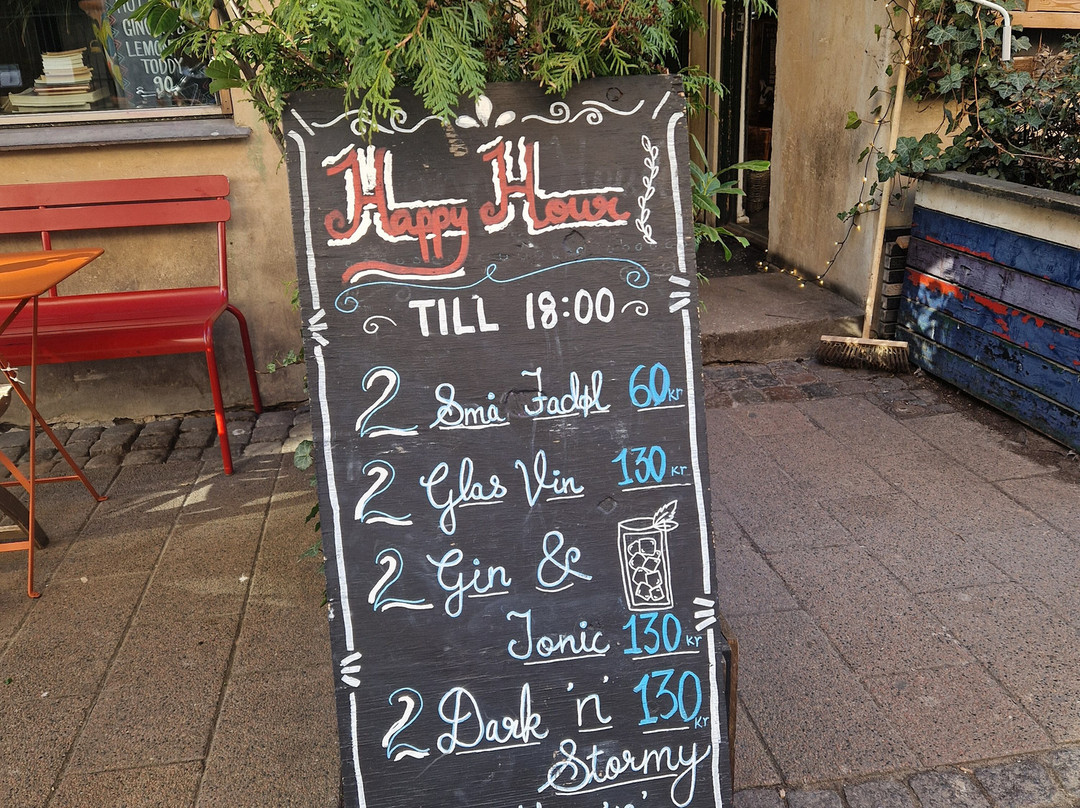 GINGER
LEMON
TODDY
90
Happy Hour
TILL 18:00
2 Små Fadøl 60 kr
2 Glas Vin 130 kr
2 Gin &
Tonic 130 kr
2 Dark 'n' 130 kr
Stormy